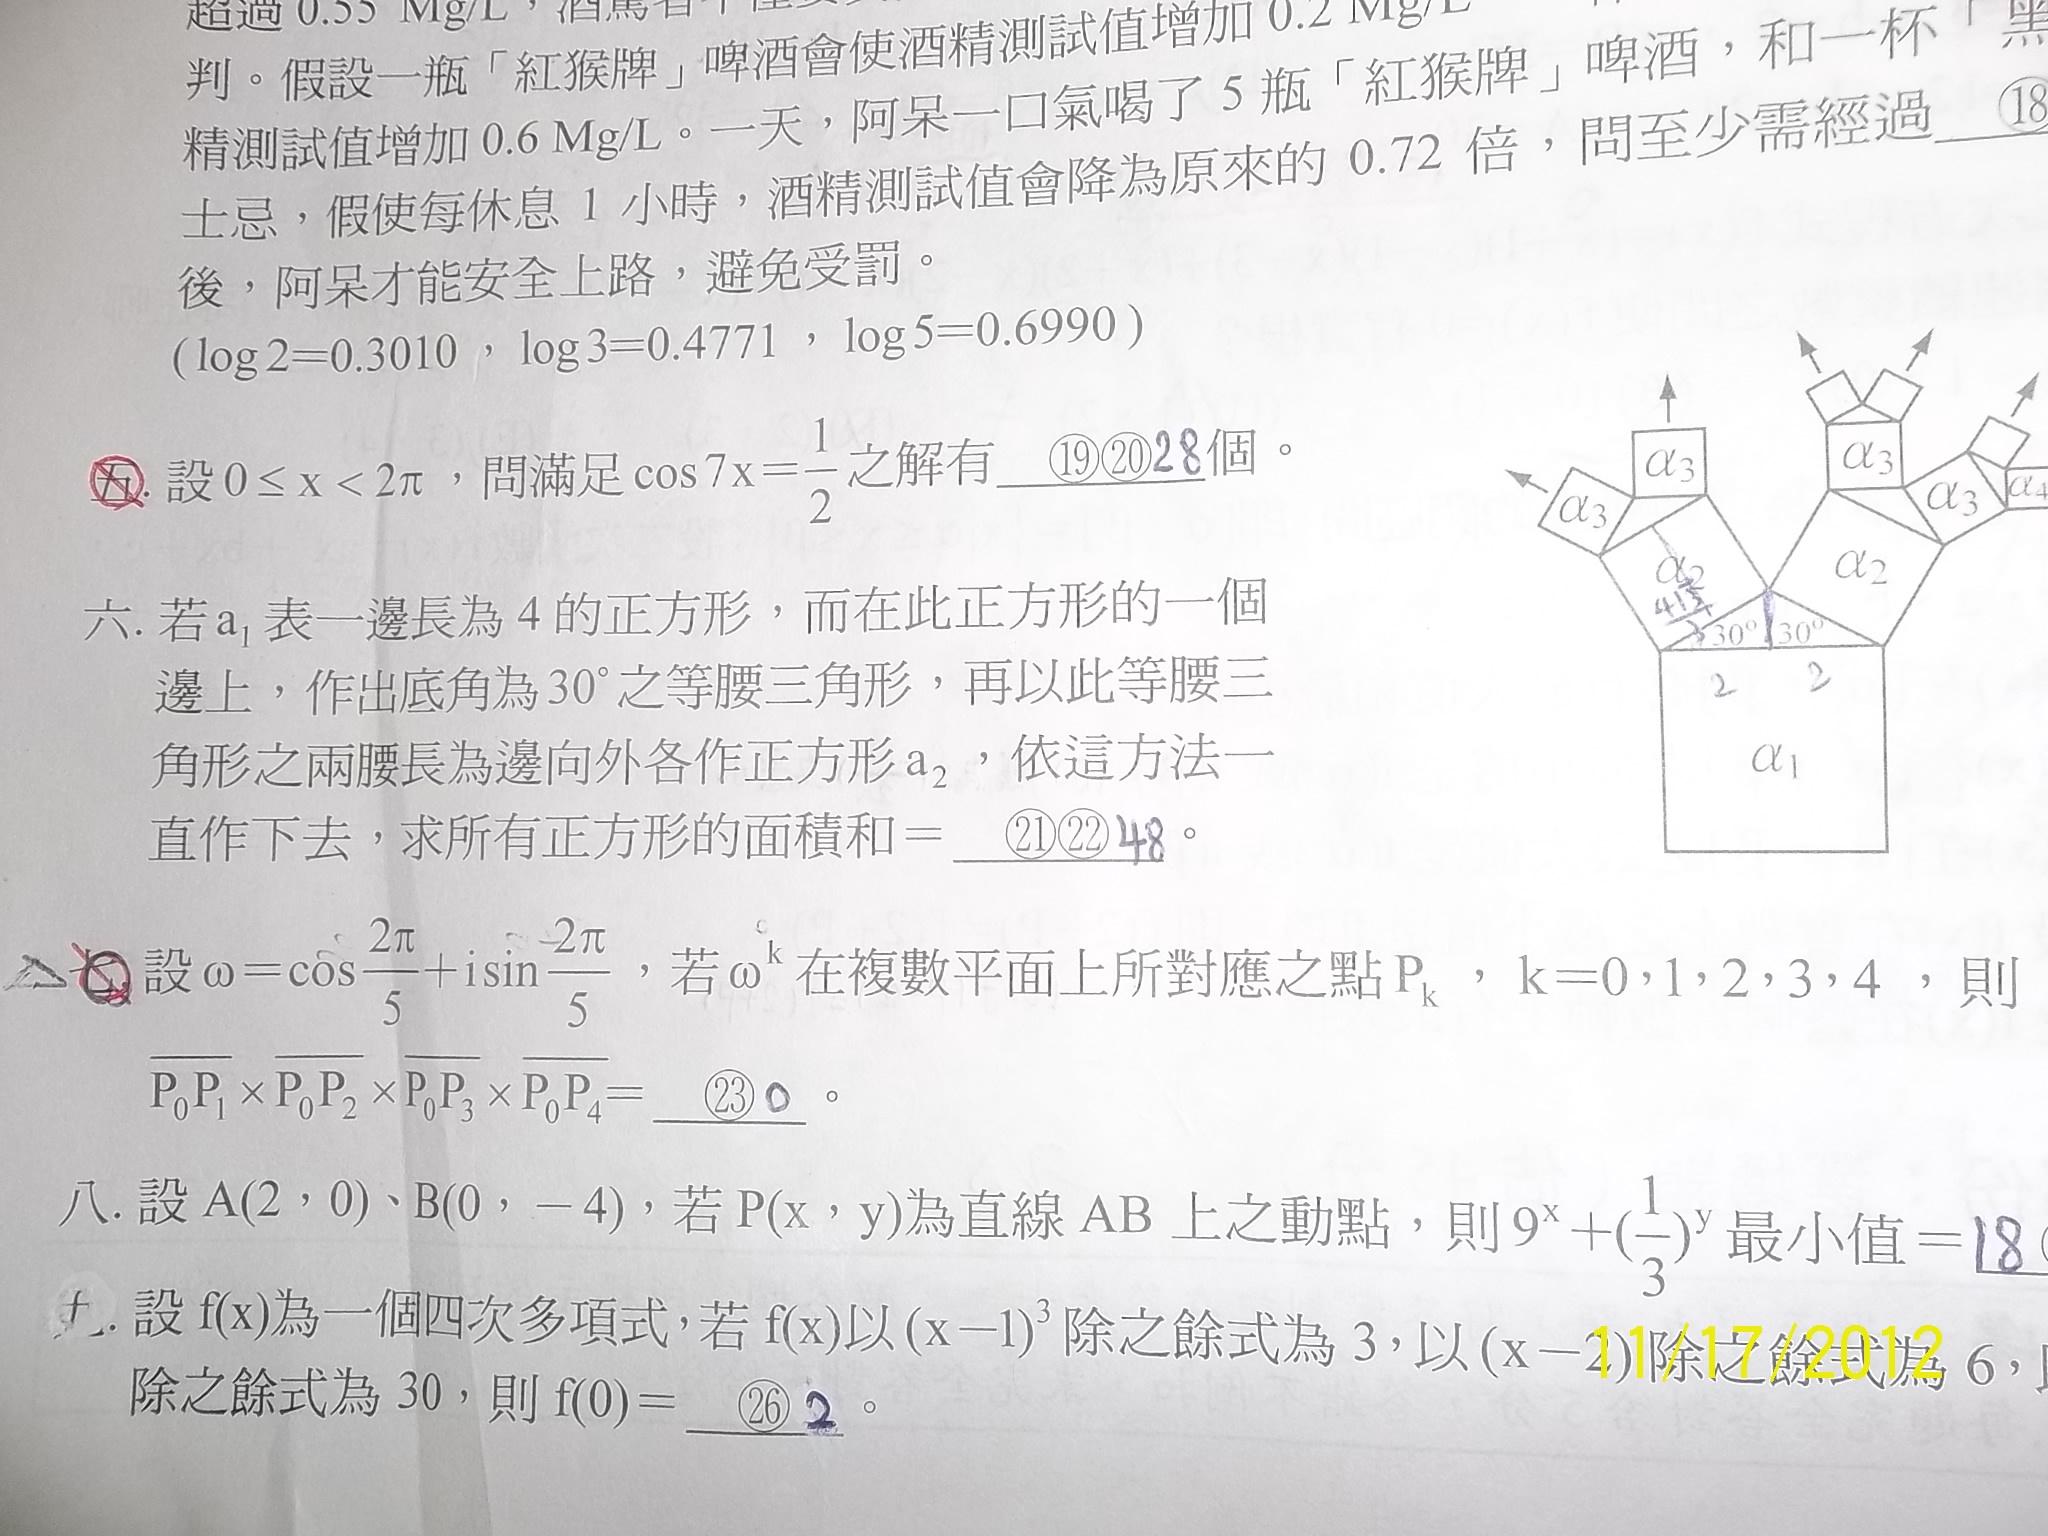 超過 0.55 Mg/L，酒駕者不僅要
判。假設一瓶「紅猴牌」啤酒會使酒精測試值增加 0.2 Mg/L
精測試值增加 0.6 Mg/L。一天，阿呆一口氣喝了 5 瓶「紅猴牌」啤酒，和一杯「黑
士忌，假使每休息 1 小時，酒精測試值會降為原來的 0.72 倍，問至少需經過 ⑱
後，阿呆才能安全上路，避免受罰。
(log2=0.3010，log3=0.4771，log5=0.6990)
五. 設 0≤x<2π，問滿足 cos7x=1/2 之解有 ⑲⑳28 個。
六. 若 a₁ 表一邊長為 4 的正方形，而在此正方形的一個
邊上，作出底角為30°之等腰三角形，再以此等腰三
角形之兩腰長為邊向外各作正方形 a₂，依這方法一
直作下去，求所有正方形的面積和＝ ㉑㉒48。
α₃ α₃ α₃ α₃ α₄
α₂ α₂
30° 30°
2 2
α₁
七 設 ω＝cos 2π/5 ＋i sin 2π/5，若 ωᵏ 在複數平面上所對應之點 Pₖ，k＝0，1，2，3，4，則
P₀P₁×P₀P₂×P₀P₃×P₀P₄＝ ㉓0。
八. 設 A(2，0)、B(0，－4)，若 P(x，y)為直線 AB 上之動點，則 9ˣ＋(1/3)ʸ 最小值＝18
九. 設 f(x)為一個四次多項式，若 f(x)以 (x－1)³ 除之餘式為 3，以 (x－2) 除之餘式為 6，
除之餘式為 30，則 f(0)＝ ㉖2。
11/17/2012